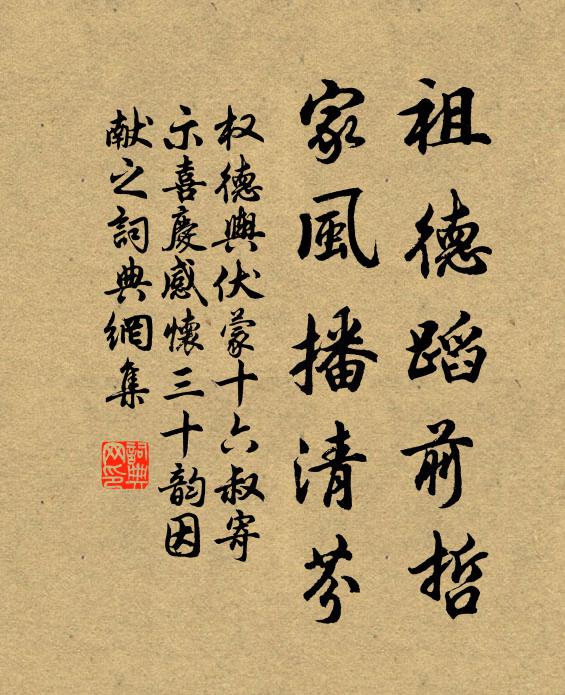 祖德蹈前哲
家風播清芬
权德輿伏蒙十六叔寄
示喜慶感懷三十韵因
献之詞典網集
詞典网印